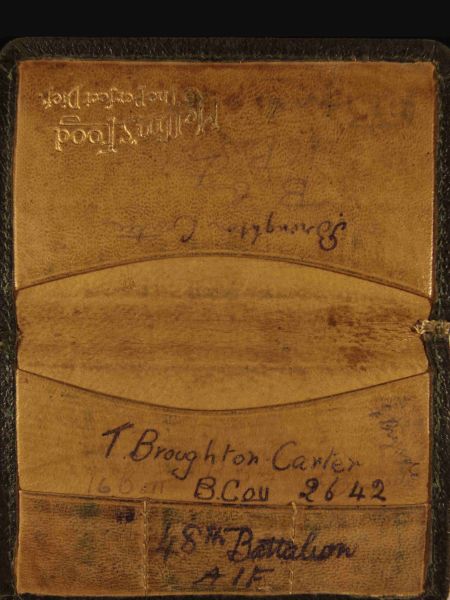 Mellin's Food
The Perfect Diet.
B C
Broughton
T. Broughton Carter
B. Coy 2642
48th Battalion
A I F